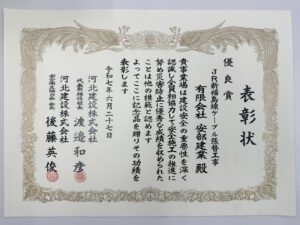 表彰状
優良賞
JR新福島線ケーブル張替工事
有限会社 安部建業 殿
貴事業場は建設安全の重要性を深く
認識し全員相協力して安全施工の推進に
努め災害防止に優秀な成績を収められた
ことは他の模範と認めます
よってここに記念品を贈りその功績を
表彰します
令和七年六月二十七日
河北建設株式会社
代表取締役 渡邉和彦
河北建設株式会社
後藤英俊